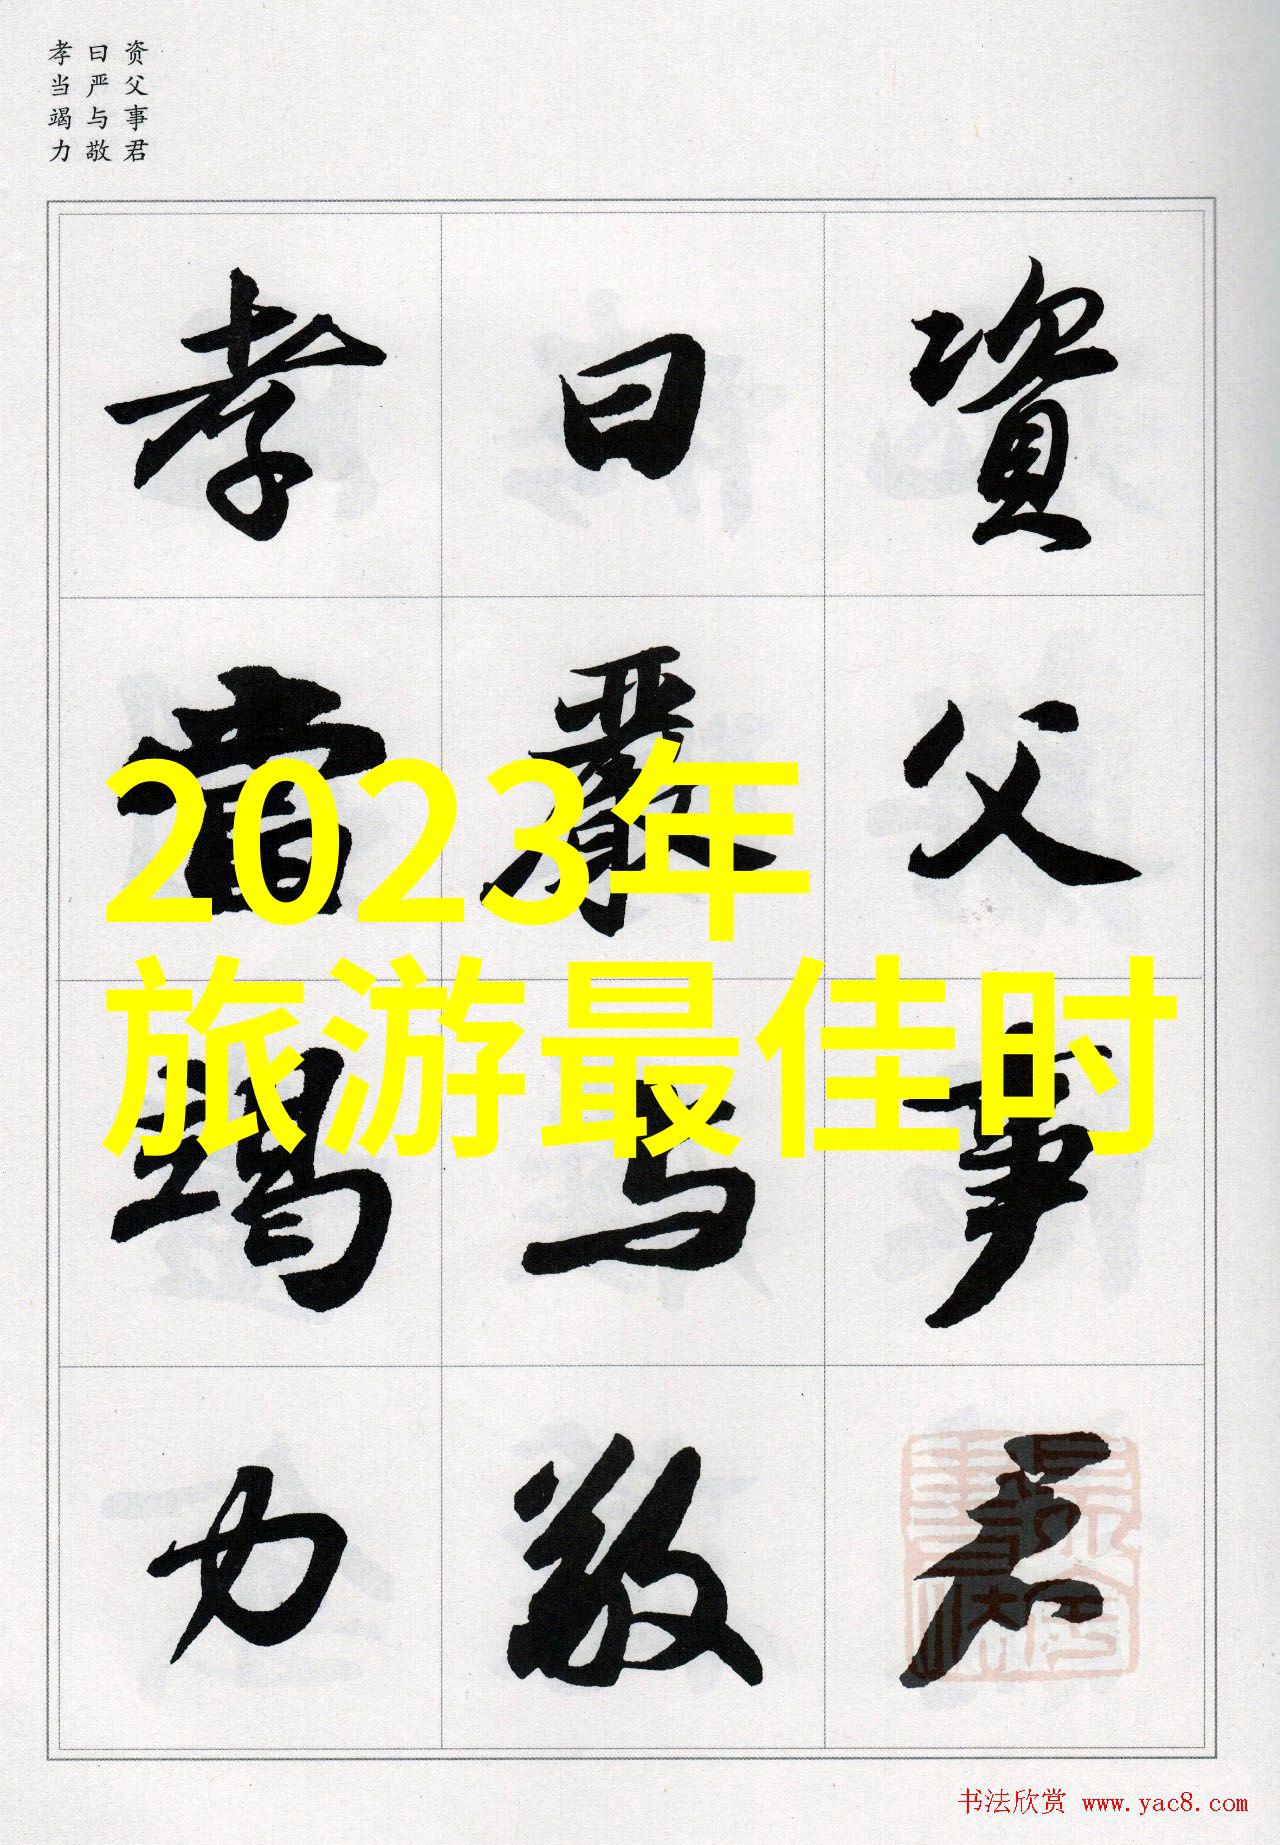 资父事君
曰严与敬
孝当竭力
資父事君
曰嚴与敬
孝當竭力
2023年
旅游最佳时
书法欣赏 www.yac8.com